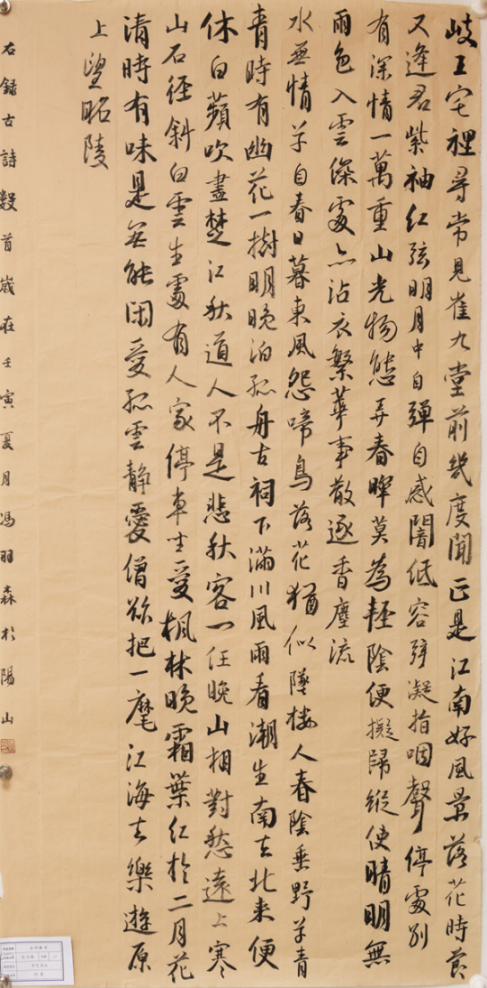 岐王宅裡尋常見崔九堂前幾度聞正是江南好風景落花時節
又逢君紫袖紅弦明月中自彈自感闇低容弦凝指咽聲停處別
有深情一萬重山光物態弄春暉莫為輕陰便擬歸縱使晴明無
雨色入雲深處亦沾衣繁華事散逐香塵流
水無情草自春日暮東風怨啼鳥落花猶似墜樓人春陰垂野草青
青時有幽花一樹明晚泊孤舟古祠下滿川風雨看潮生南去北來便
休白蘋吹盡楚江秋道人不是悲秋客一任晚山相對愁遠上寒
山石徑斜白雲生處有人家停車坐愛楓林晚霜葉紅於二月花
清時有味是無能閑愛孤雲靜愛僧欲把一麾江海去樂遊原
上望昭陵
右錄古詩數首歲在壬寅夏月馮羽森於陽山